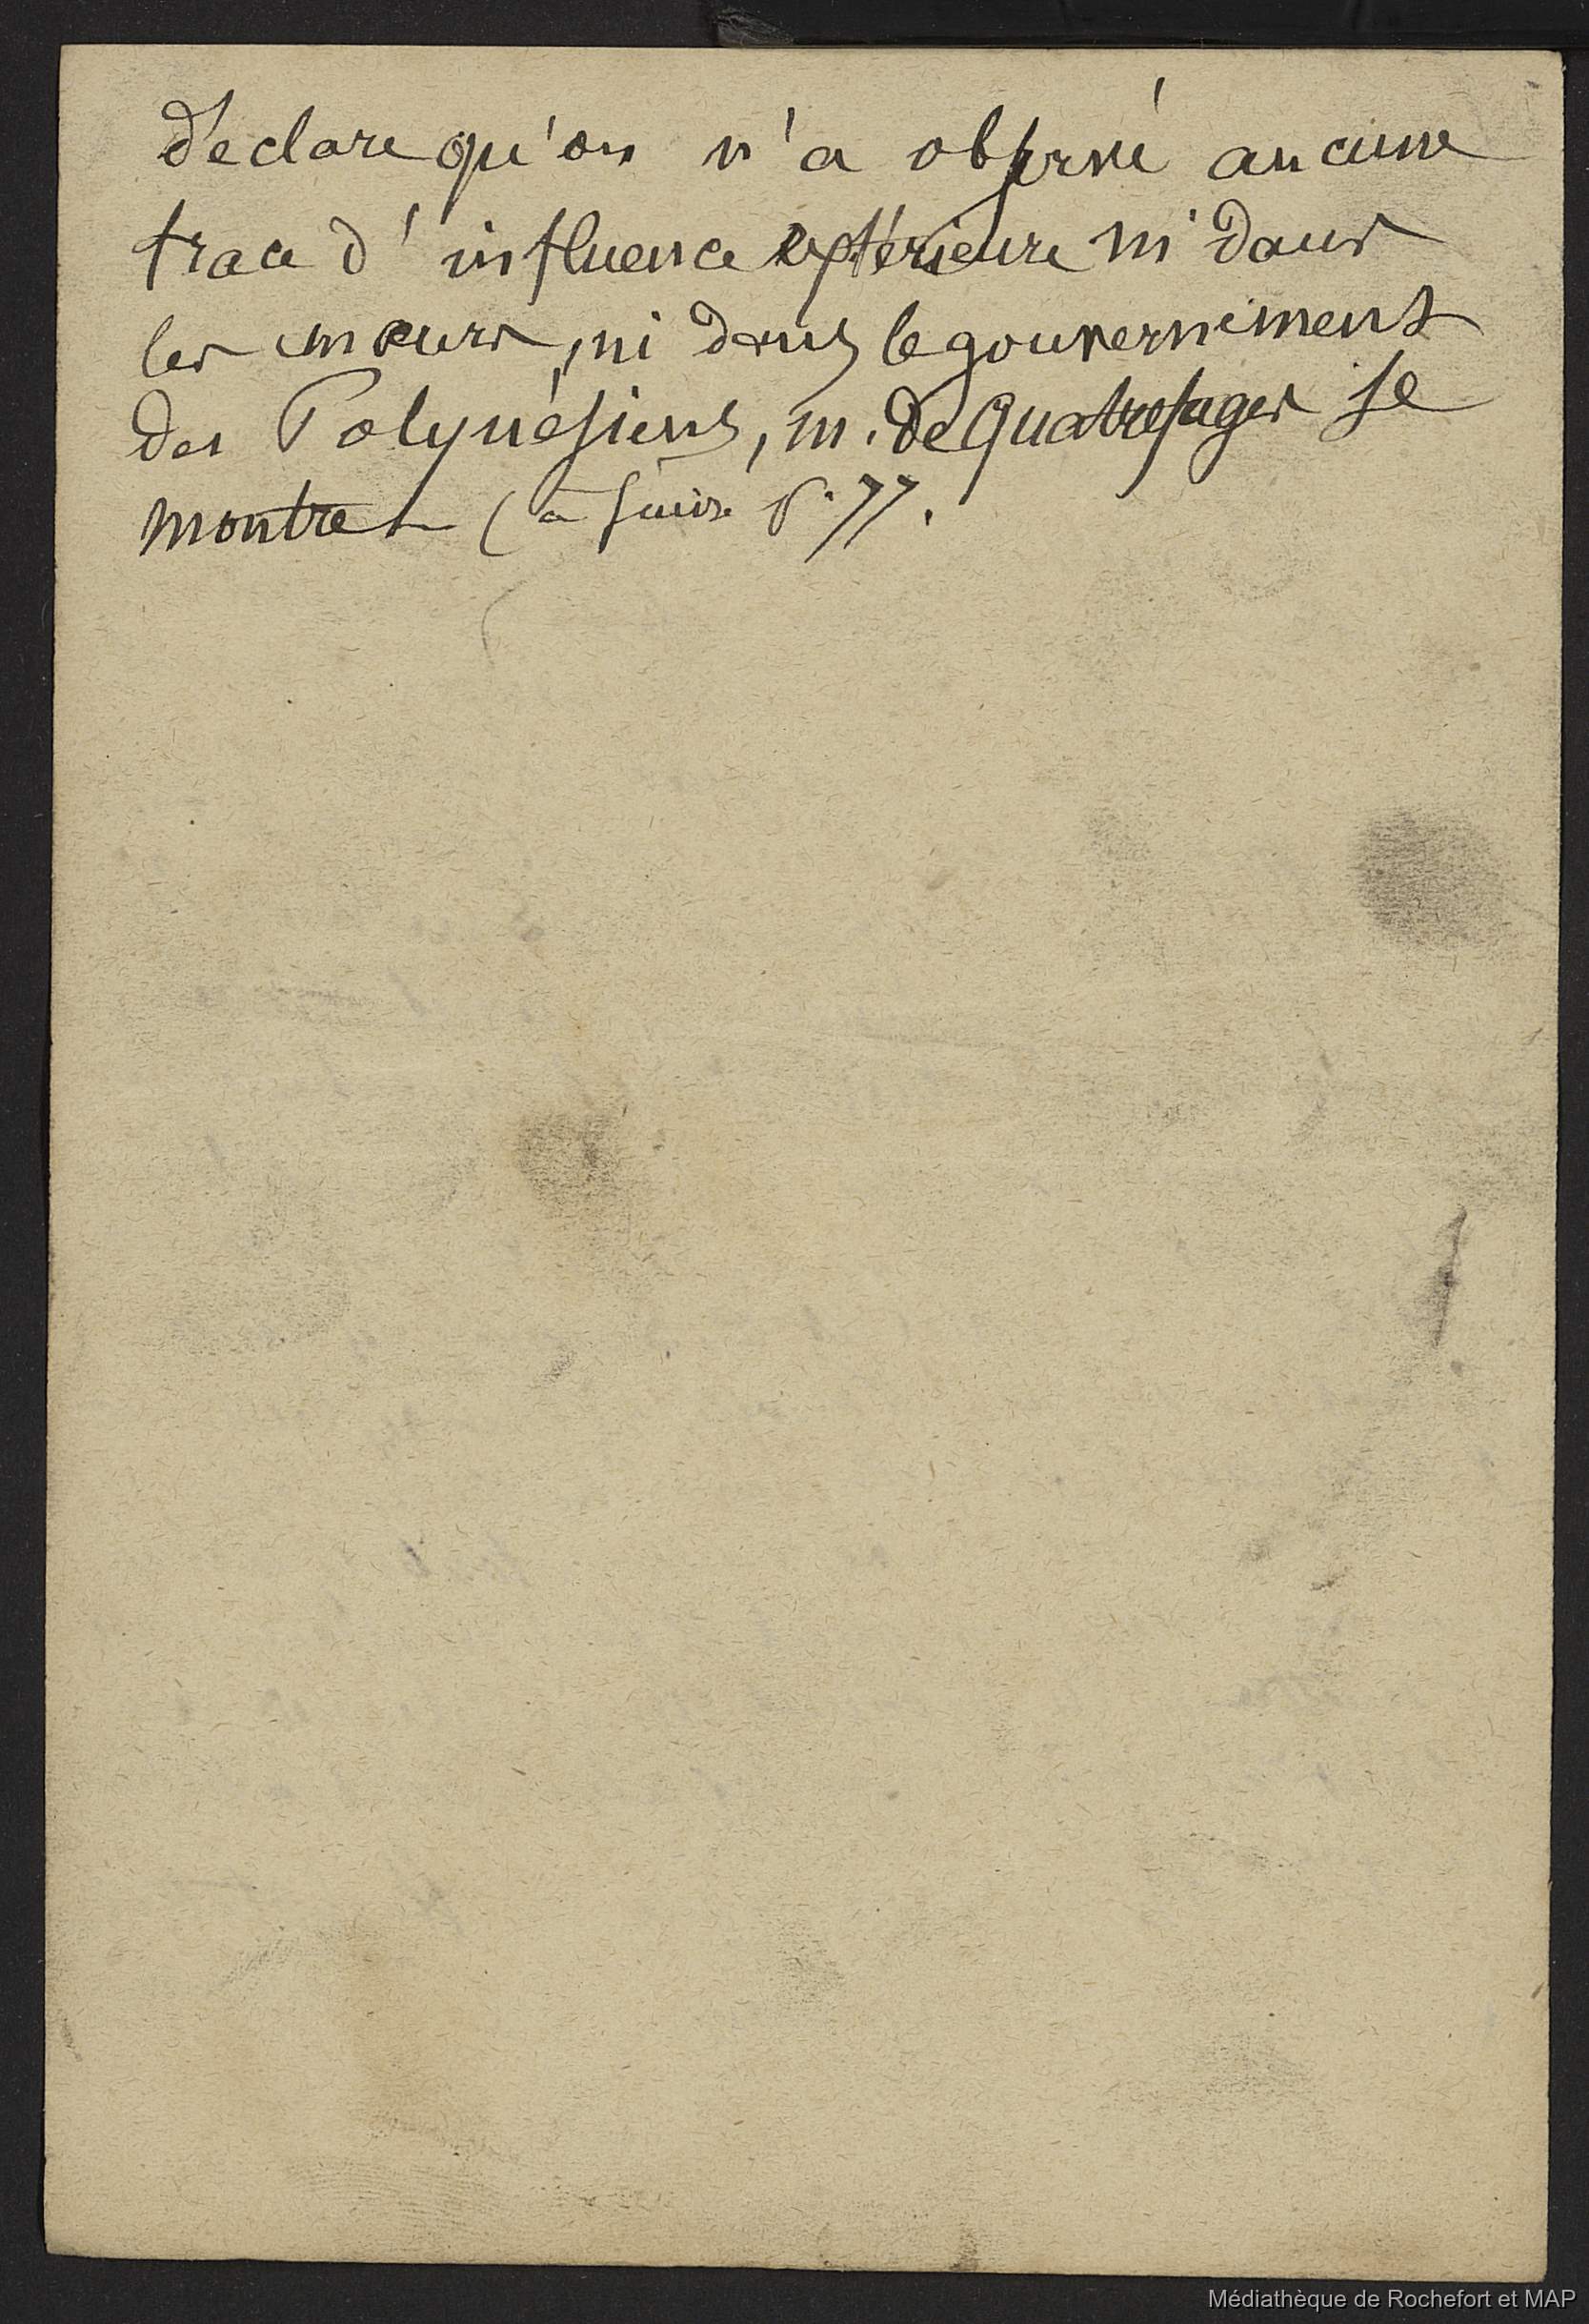 déclare qu'on n'a observé aucune
trace d'influence extérieure ni dans
les mœurs, ni dans le gouvernement
des Polynésiens, m. de Quatrefages se
montre (à suivre p. 77.
Médiathèque de Rochefort et MAP